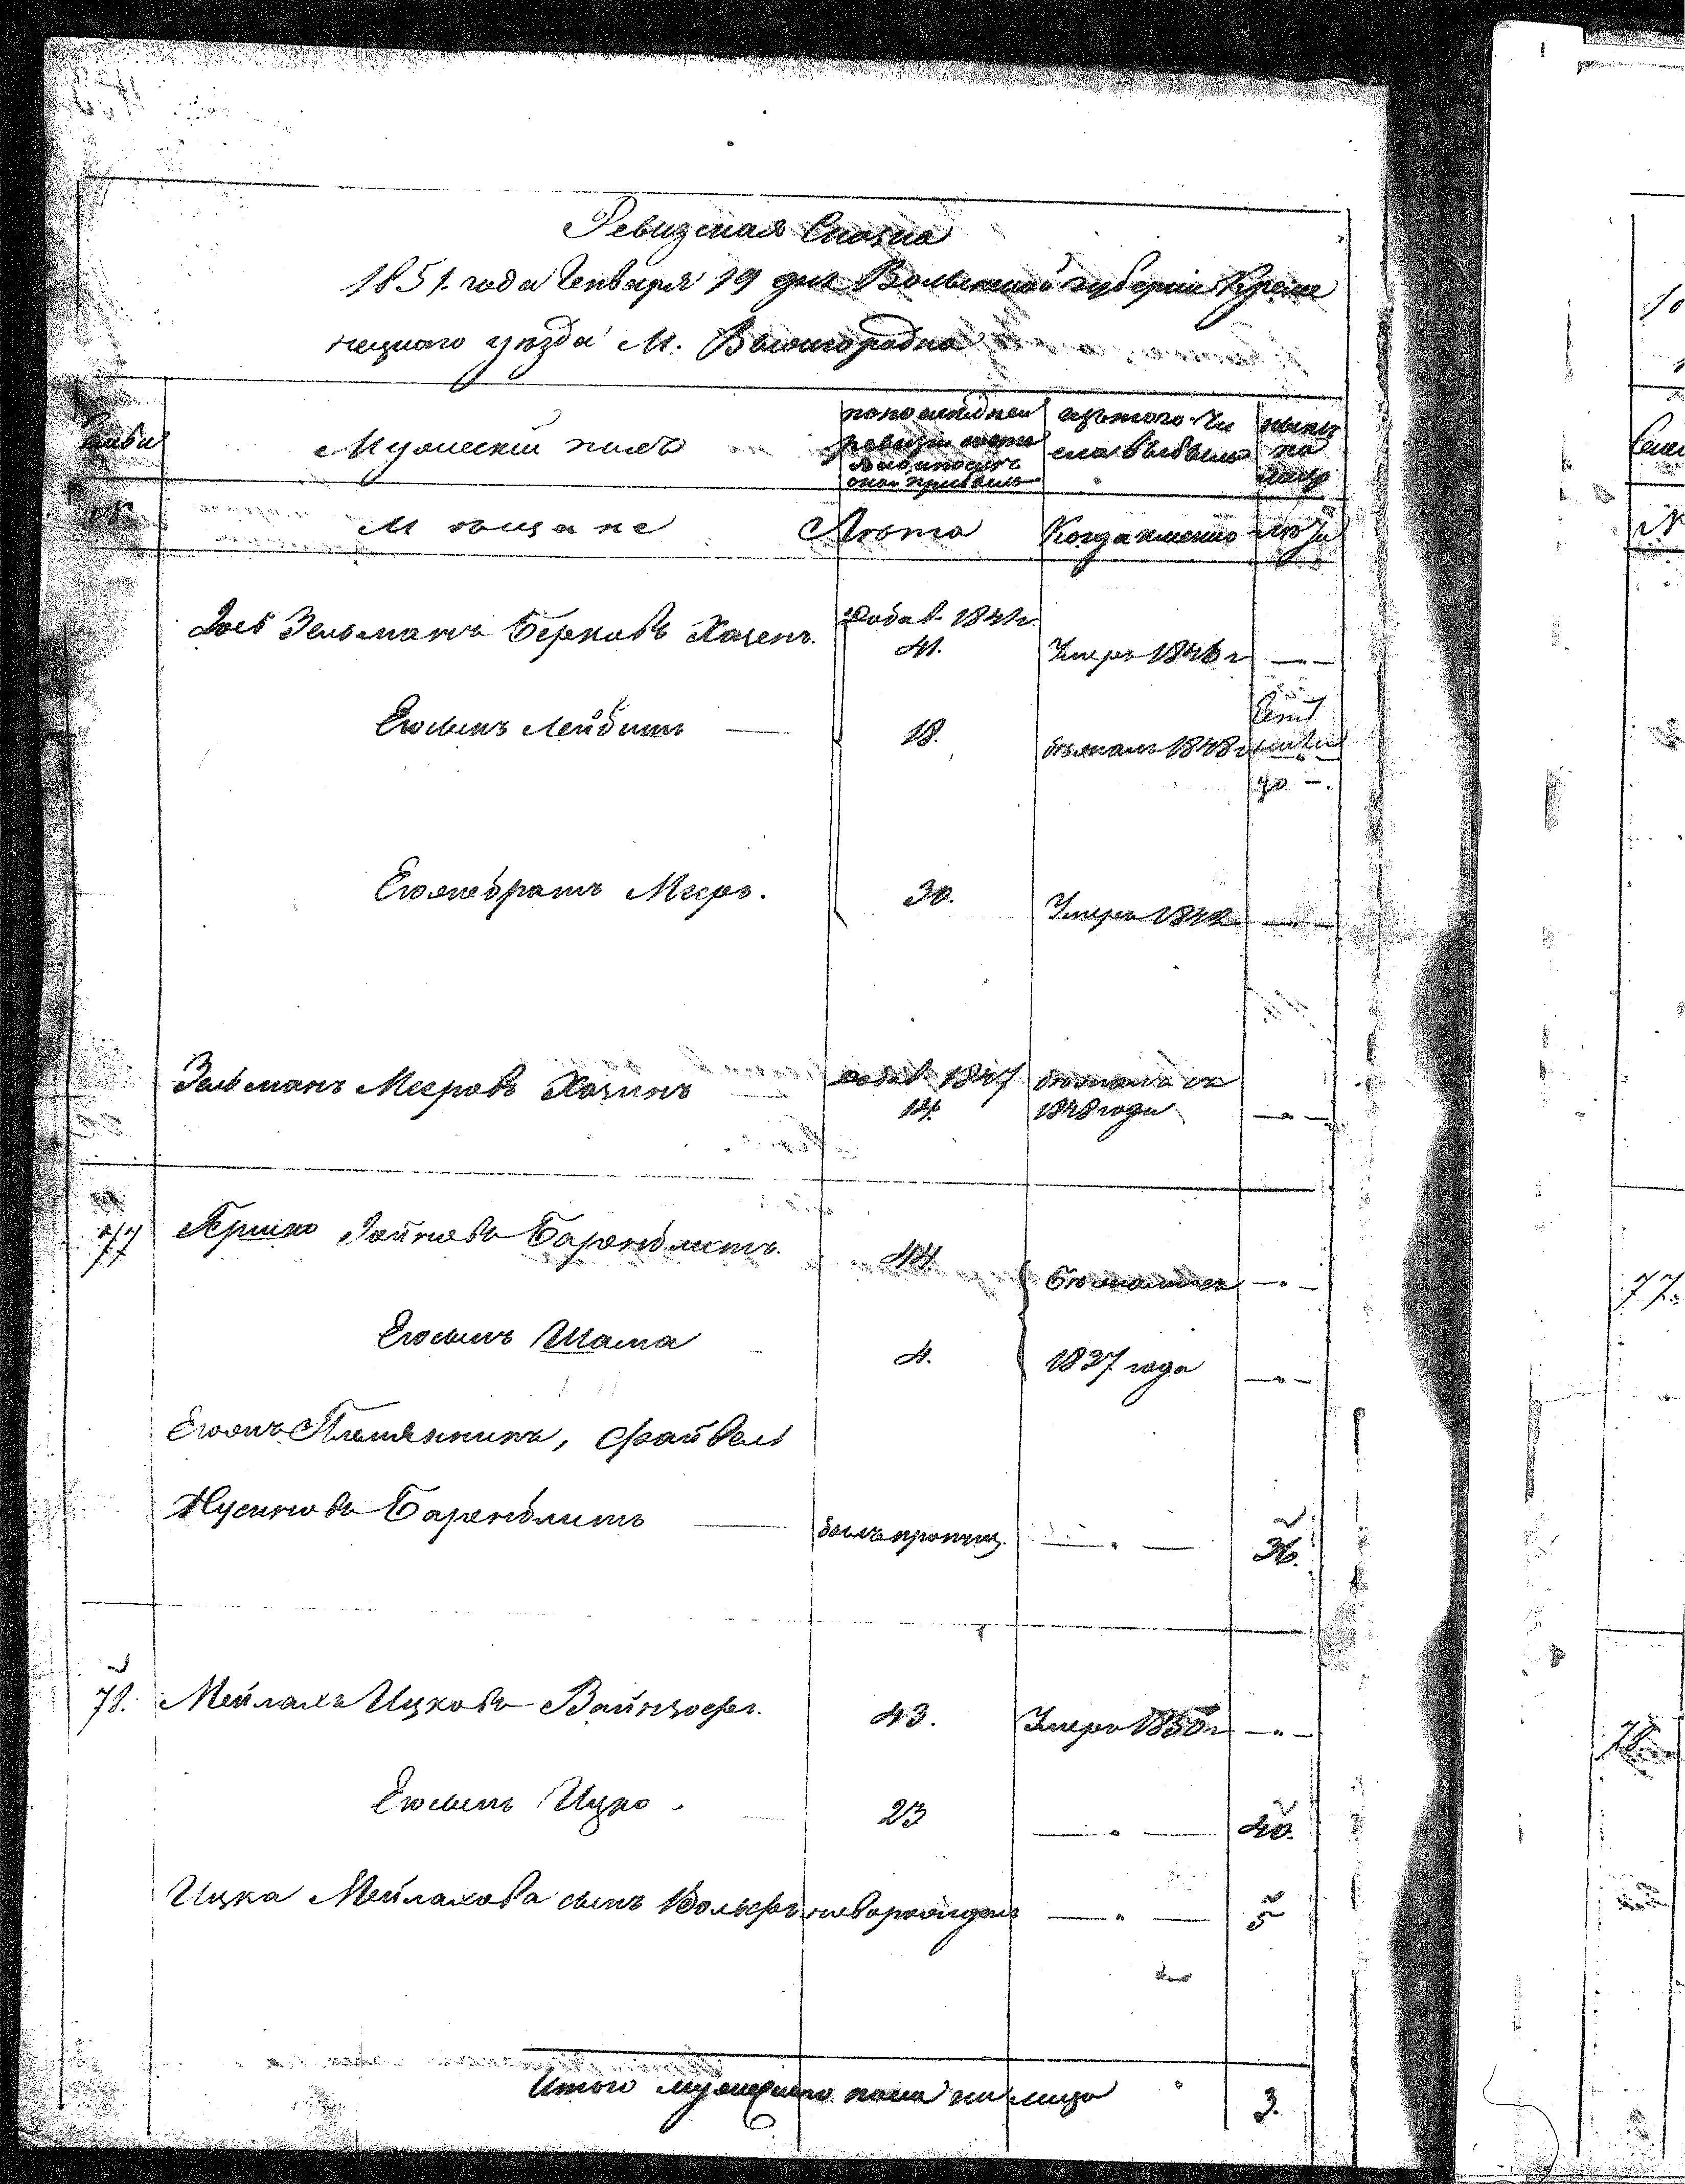 Ревизская Сказка
1851. года Генваря 19 дня Волынской губерніи Креме
нецкаго уѣзда М. Вышгородка
Мужескій полъ
по последней ревизіи состо
изъ того чи
сла выбыло
нынѣ
на
лицо
№
Мѣщане
Лѣта
Когда именно
Лѣта
Зельманъ Берковъ Хазенъ.
Добав. 1841г.
41.
Умеръ 1846 г
Его сынъ Лейбишъ
18.
бѣжалъ 1848 г
Его же братъ Мееръ.
30.
Умеръ 1842
Зельманъ Мееровъ Хазинъ
добав. 1847
14.
бѣжалъ съ
1848 года
77
Гершко Зойновъ Баренблитъ.
44
Бѣжали съ
Его сынъ Шама
4.
1837 года
Его жъ Племянникъ, Файвель
Нусиновъ Баренблитъ
былъ пропущ.
36.
78.
Мейлахъ Ицковъ Вайнзофъ.
43.
Умеръ 1850 г
Его сынъ Ицко.
23
40.
Ицка Мейлахова сынъ Вольфъ новорожденъ
5
Итого мужескаго пола на лицо
3.
№
77.
78.